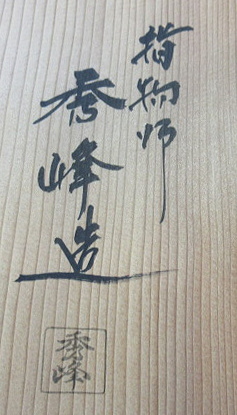 指物師
秀峰造
秀峰